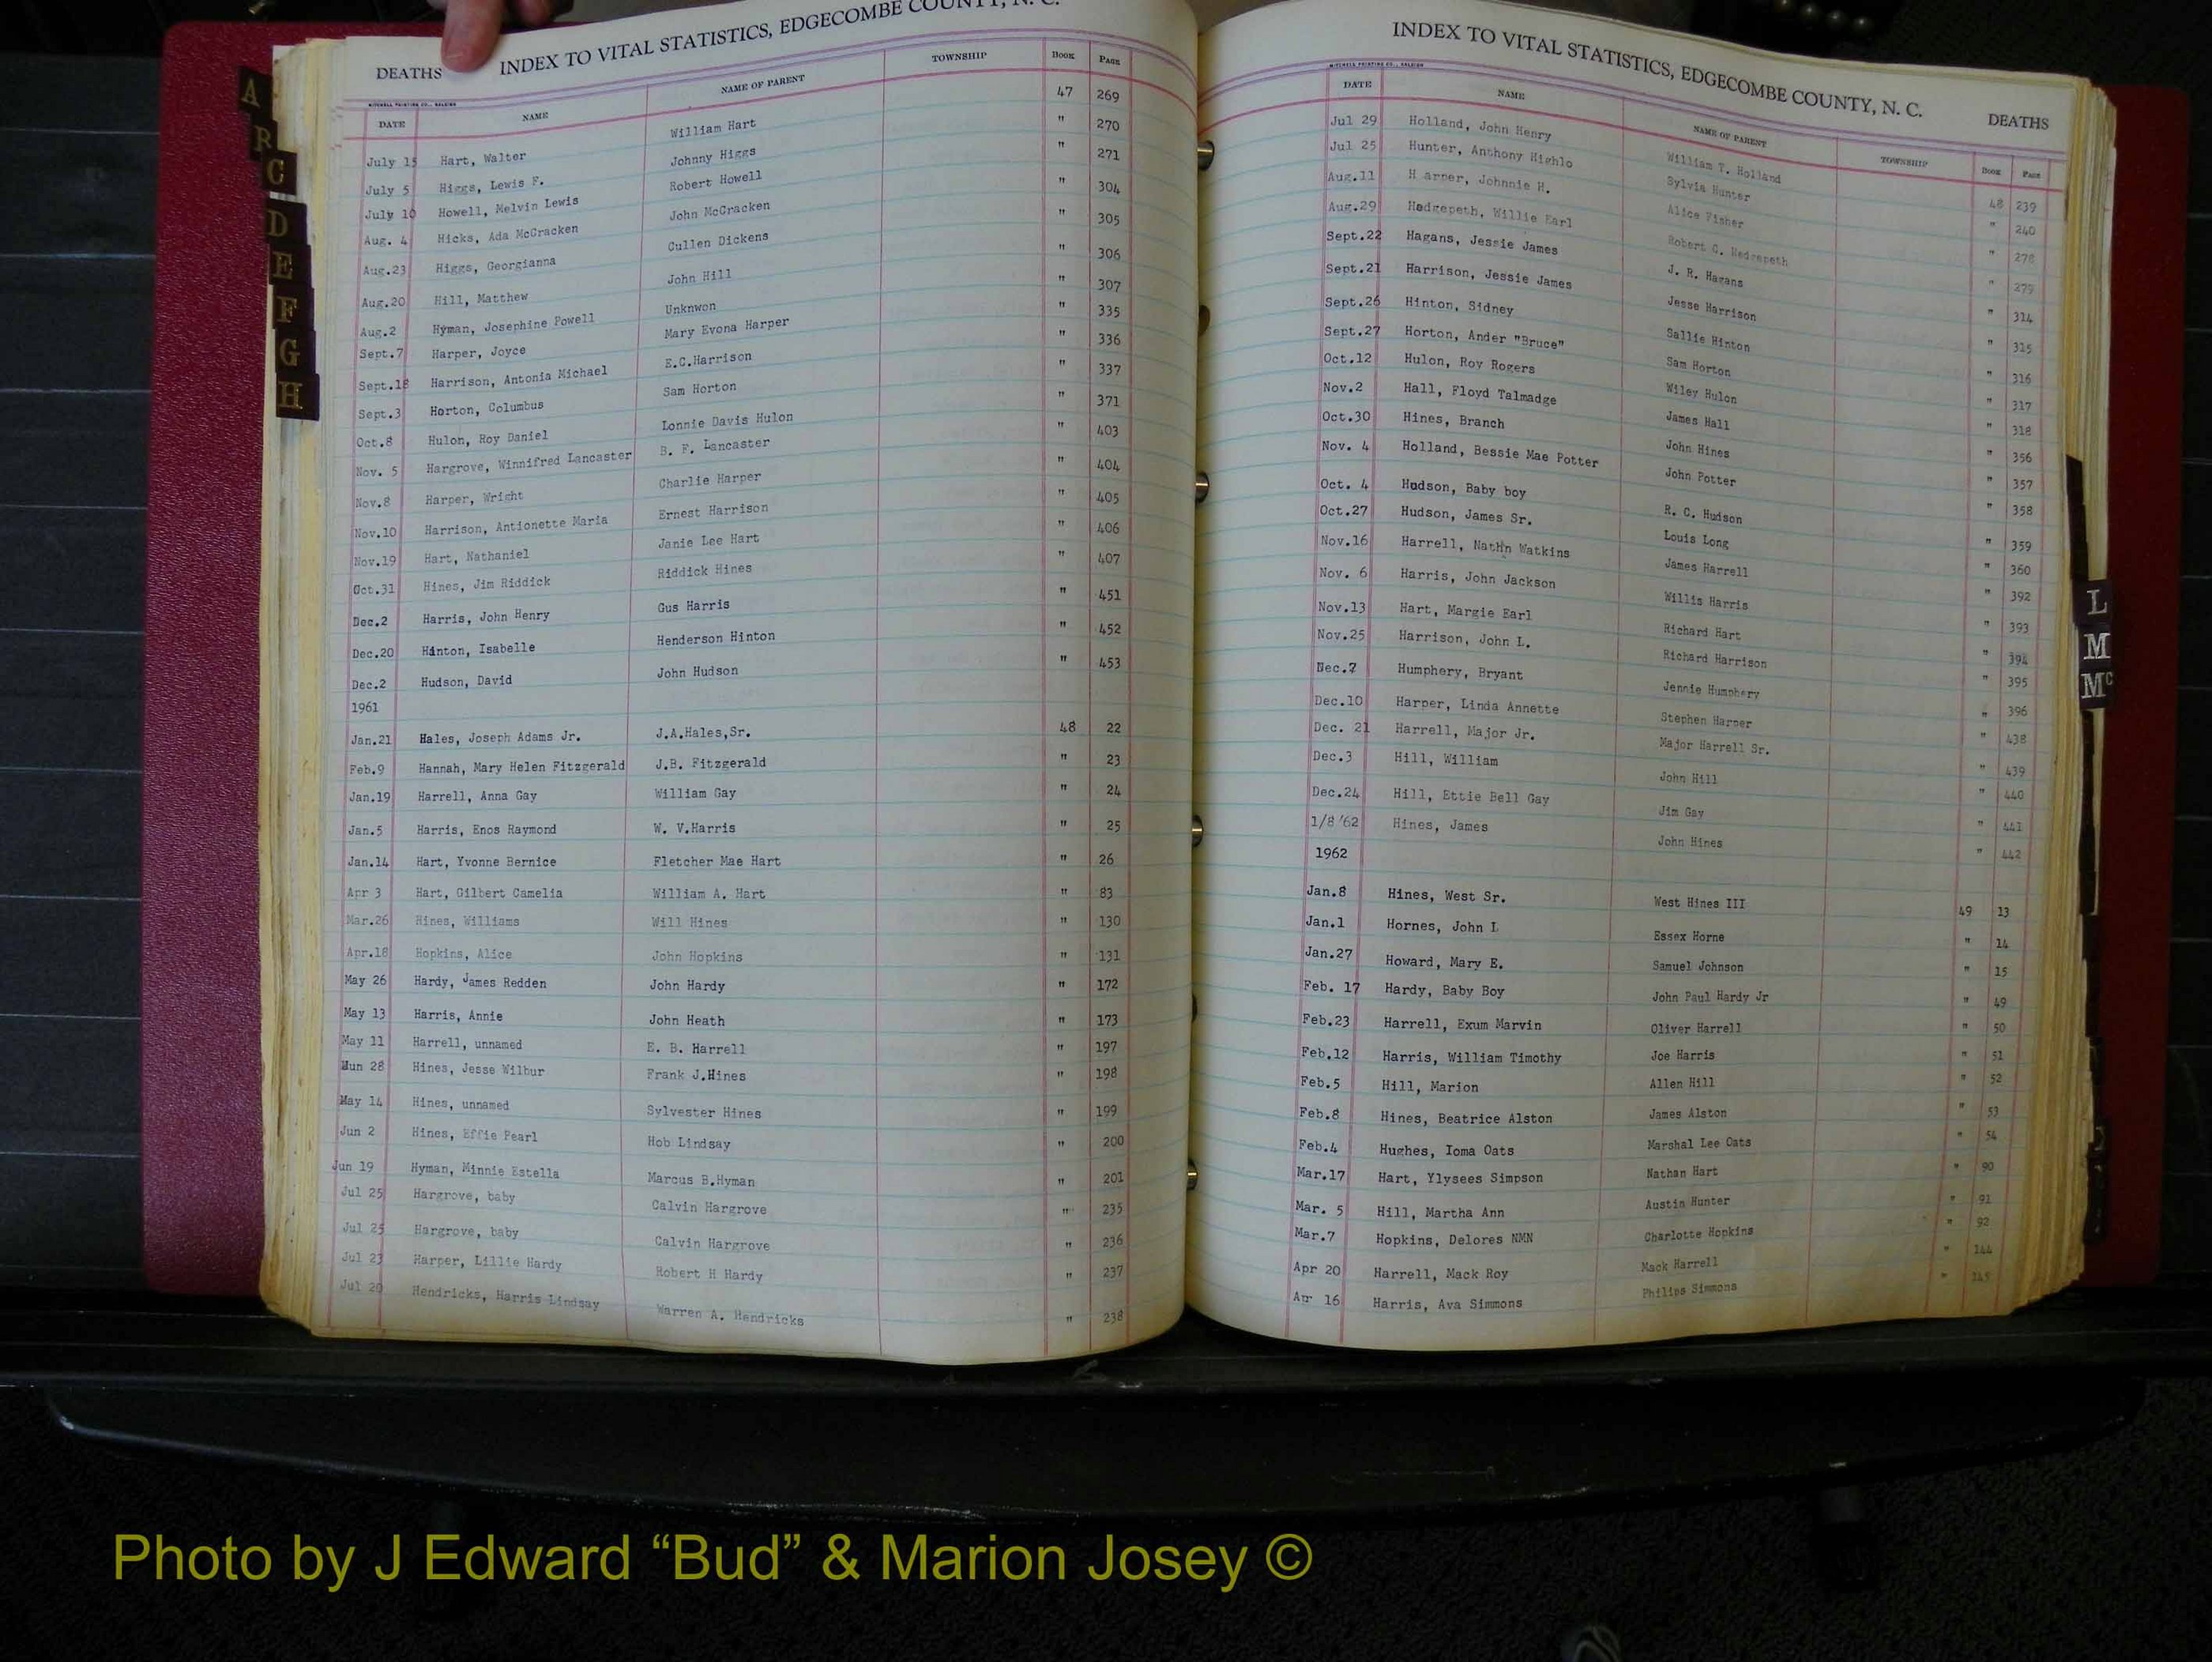 DEATHS INDEX TO VITAL STATISTICS, EDGECOMBE COUNTY, N. C.
MITCHELL PRINTING CO., RALEIGH
DATE NAME NAME OF PARENT TOWNSHIP BOOK PAGE
July 15 Hart, Walter William Hart 47 269
July 5 Higgs, Lewis F. Johnny Higgs " 270
July 10 Howell, Melvin Lewis Robert Howell " 271
Aug. 4 Hicks, Ada McCracken John McCracken " 304
Aug.23 Higgs, Georgianna Cullen Dickens " 305
Aug.20 Hill, Matthew John Hill " 306
Aug.2 Hyman, Josephine Powell Unknwon " 307
Sept.7 Harper, Joyce Mary Evona Harper " 335
Sept.18 Harrison, Antonia Michael E.C.Harrison " 336
Sept.3 Horton, Columbus Sam Horton " 337
Oct.8 Hulon, Roy Daniel Lonnie Davis Hulon " 371
Nov. 5 Hargrove, Winnifred Lancaster B. F. Lancaster " 403
Nov.8 Harper, Wright Charlie Harper " 404
Nov.10 Harrison, Antionette Maria Ernest Harrison " 405
Nov.19 Hart, Nathaniel Janie Lee Hart " 406
Oct.31 Hines, Jim Riddick Riddick Hines " 407
Dec.2 Harris, John Henry Gus Harris " 451
Dec.20 Hinton, Isabelle Henderson Hinton " 452
Dec.2 Hudson, David John Hudson " 453
1961
Jan.21 Hales, Joseph Adams Jr. J.A.Hales,Sr. 48 22
Feb.9 Hannah, Mary Helen Fitzgerald J.B. Fitzgerald " 23
Jan.19 Harrell, Anna Gay William Gay " 24
Jan.5 Harris, Enos Raymond W. V.Harris " 25
Jan.14 Hart, Yvonne Bernice Fletcher Mae Hart " 26
Apr 3 Hart, Gilbert Camelia William A. Hart " 83
Mar.26 Hines, Williams Will Hines " 130
Apr.18 Hopkins, Alice John Hopkins " 131
May 26 Hardy, James Redden John Hardy " 172
May 13 Harris, Annie John Heath " 173
May 11 Harrell, unnamed E. B. Harrell " 197
28 Hines, Jesse Wilbur Frank J.Hines " 198
May 14 Hines, unnamed Sylvester Hines " 199
Jun 2 Hines, Effie Pearl Hob Lindsay " 200
Jun 19 Hyman, Minnie Estella Marcus B.Hyman " 201
Jul 25 Hargrove, baby Calvin Hargrove " 235
Jul 25 Hargrove, baby Calvin Hargrove " 236
Jul 23 Harper, Lillie Hardy Robert H Hardy " 237
Jul 20 Hendricks, Harris Lindsay Warren A. Hendricks " 238
INDEX TO VITAL STATISTICS, EDGECOMBE COUNTY, N. C. DEATHS
MITCHELL PRINTING CO., RALEIGH
DATE NAME NAME OF PARENT TOWNSHIP BOOK PAGE
Jul 29 Holland, John Henry William T. Holland 48 239
Jul 25 Hunter, Anthony Highlo Sylvia Hunter " 240
Aug.11 H arper, Johnnie H. Alice Fisher " 278
Aug.29 Hedgepeth, Willie Earl Robert C. Hedgepeth " 279
Sept.22 Hagans, Jessie James J. R. Hagans " 314
Sept.21 Harrison, Jessie James Jesse Harrison " 315
Sept.26 Hinton, Sidney Sallie Hinton " 316
Sept.27 Horton, Ander "Bruce" Sam Horton " 317
Oct.12 Hulon, Roy Rogers Wiley Hulon " 318
Nov.2 Hall, Floyd Talmadge James Hall " 356
Oct.30 Hines, Branch John Hines " 357
Nov. 4 Holland, Bessie Mae Potter John Potter " 358
Oct. 4 Hudson, Baby boy R. C. Hudson " 359
Oct.27 Hudson, James Sr. Louis Long " 360
Nov.16 Harrell, Nath'n Watkins James Harrell " 392
Nov. 6 Harris, John Jackson Willis Harris " 393
Nov.13 Hart, Margie Earl Richard Hart " 394
Nov.25 Harrison, John L. Richard Harrison " 395
Dec.7 Humphery, Bryant Jennie Humphery " 396
Dec.10 Harper, Linda Annette Stephen Harper " 438
Dec. 21 Harrell, Major Jr. Major Harrell Sr. " 439
Dec.3 Hill, William John Hill " 440
Dec.24 Hill, Ettie Bell Gay Jim Gay " 441
1/8 '62 Hines, James John Hines " 442
1962
Jan.8 Hines, West Sr. West Hines III 49 13
Jan.1 Hornes, John L Essex Horne " 14
Jan.27 Howard, Mary E. Samuel Johnson " 15
Feb. 17 Hardy, Baby Boy John Paul Hardy Jr " 49
Feb.23 Harrell, Exum Marvin Oliver Harrell " 50
Feb.12 Harris, William Timothy Joe Harris " 51
Feb.5 Hill, Marion Allen Hill " 52
Feb.8 Hines, Beatrice Alston James Alston " 53
Feb.4 Hughes, Ioma Oats Marshal Lee Oats " 54
Mar.17 Hart, Ylysees Simpson Nathan Hart " 90
Mar. 5 Hill, Martha Ann Austin Hunter " 91
Mar.7 Hopkins, Delores NMN Charlotte Hopkins " 92
Apr 20 Harrell, Mack Roy Mack Harrell " 144
Apr 16 Harris, Ava Simmons Philips Simmons " 145
A
C
D
E
F
G
H
L
M
Mc
Photo by J Edward “Bud” & Marion Josey ©